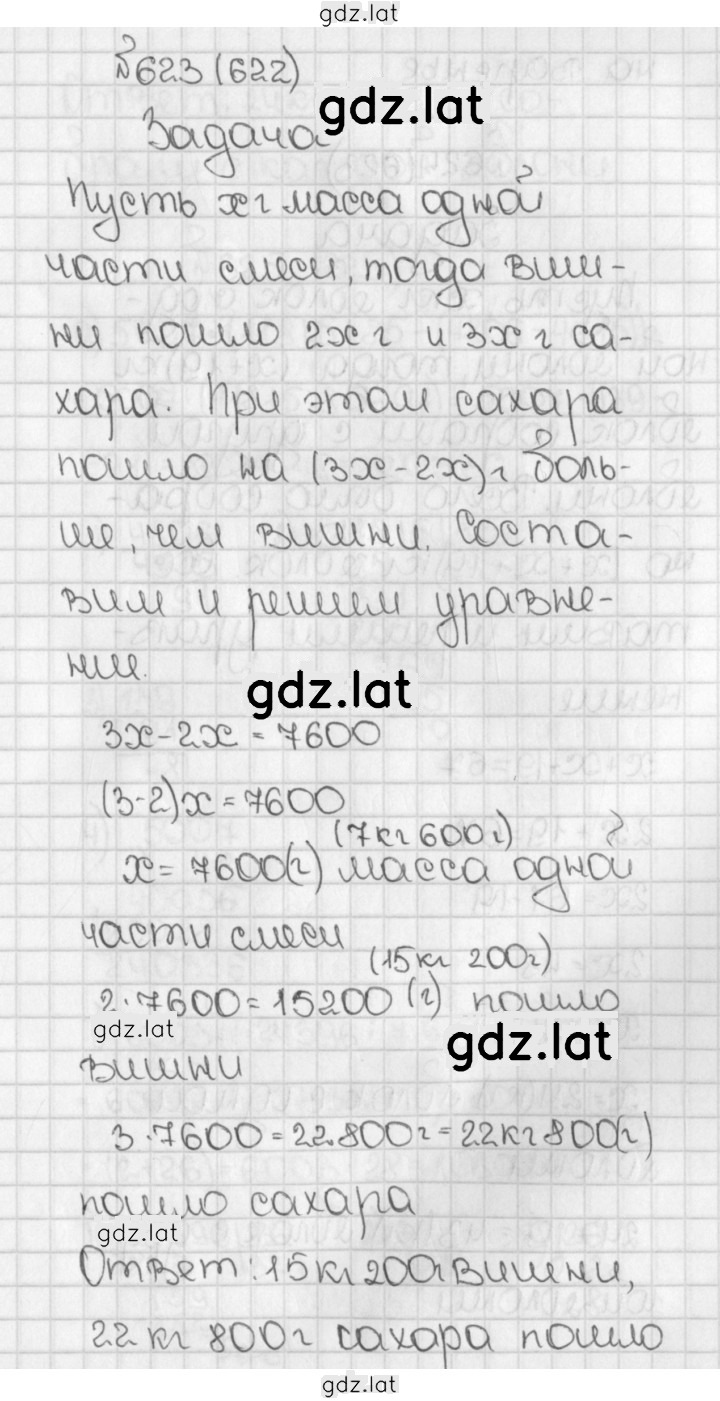 gdz.lat
№623(622)
gdz.lat
Задача
Пусть x г масса одной
части смеси, тогда виш-
ни пошло 2x г и 3x г са-
хара. При этом сахара
пошло на (3x-2x) г боль-
ше, чем вишни. Соста-
вим и решим уравне-
нии.
gdz.lat
3x-2x=7600
(3-2)x=7600
(7кг 600г)
x=7600(г) масса одной
части смеси
(15кг 200г)
2·7600=15200 (г) пошло
gdz.lat
gdz.lat
вишни
3·7600=22800г=22кг800(г)
пошло сахара
gdz.lat
Ответ: 15кг 200г вишни,
22 кг 800г сахара пошло
gdz.lat